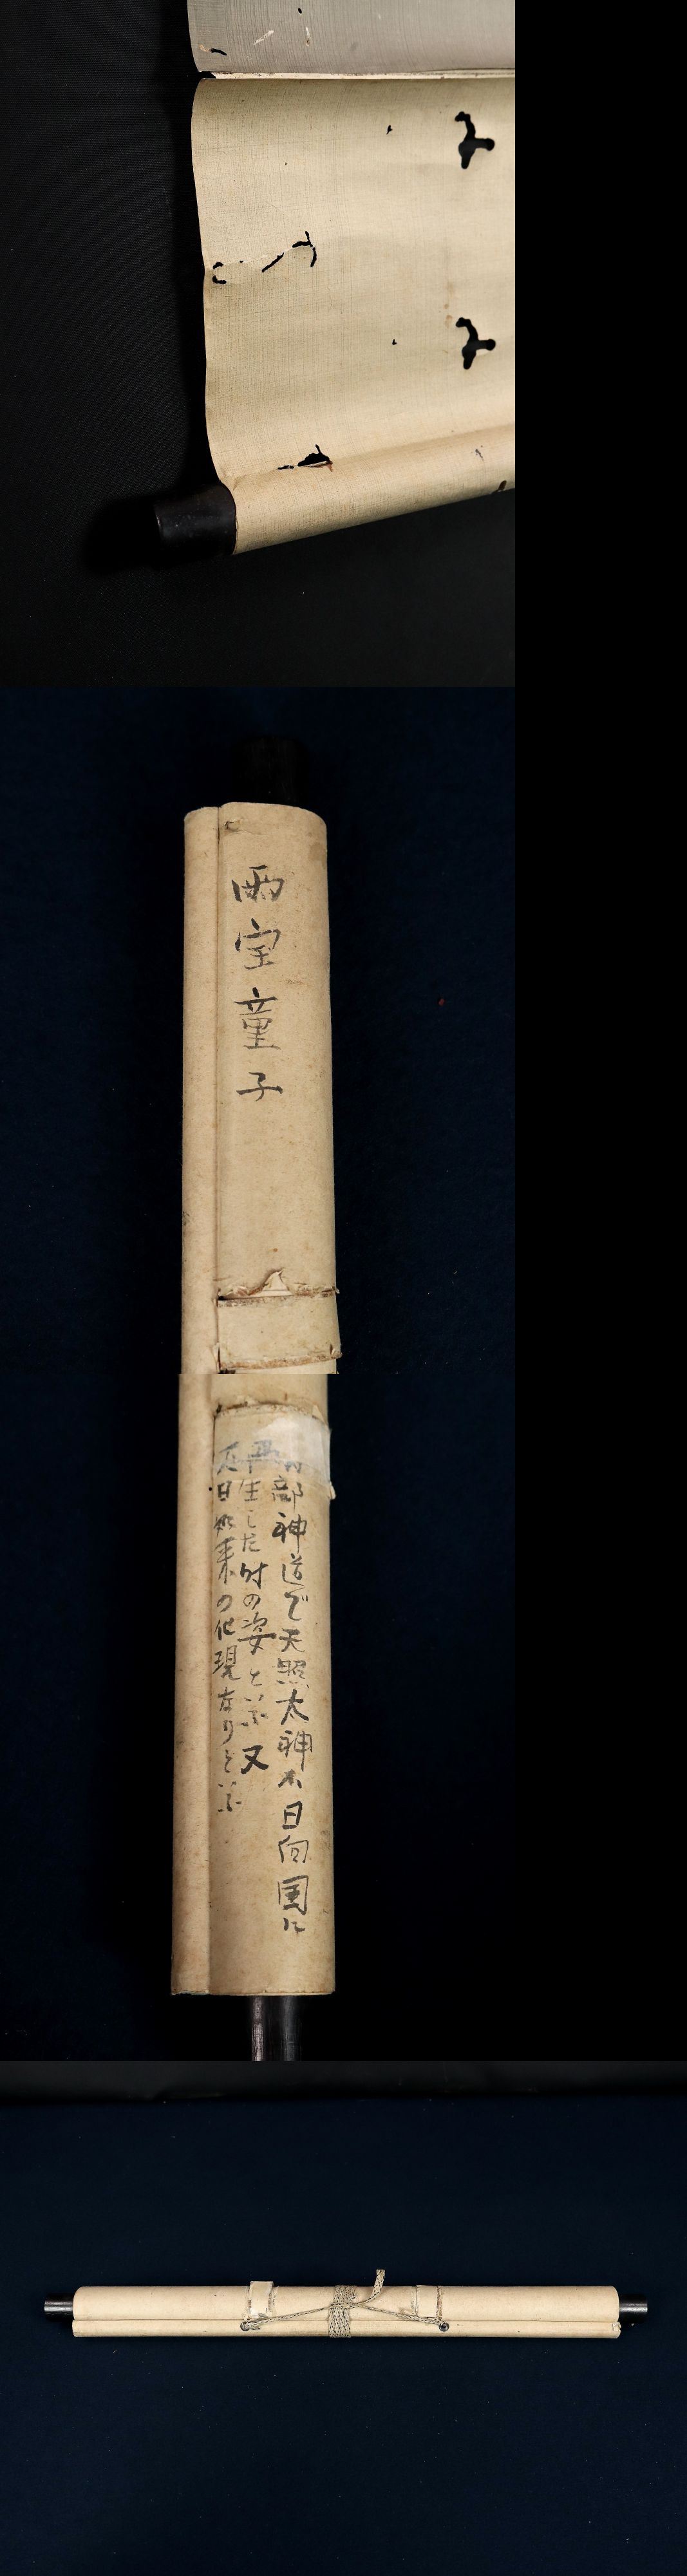 雨宝童子
部神道で天照太神が日向国に
生した時の姿といふ又
大日如来の化現なりといふ